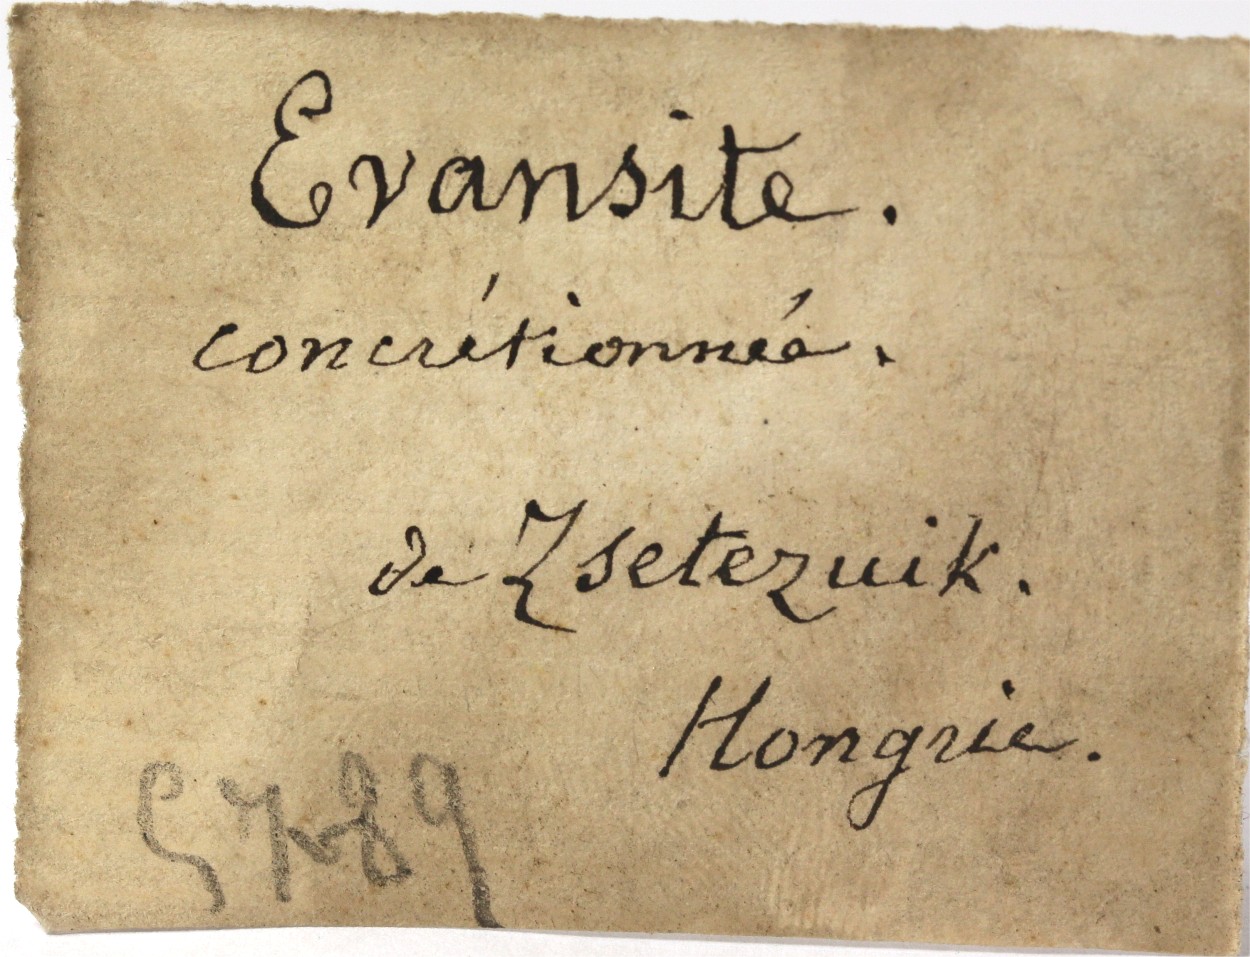 Evansite.
concrétionnée.
de Zsetezuik.
Hongrie.
5789